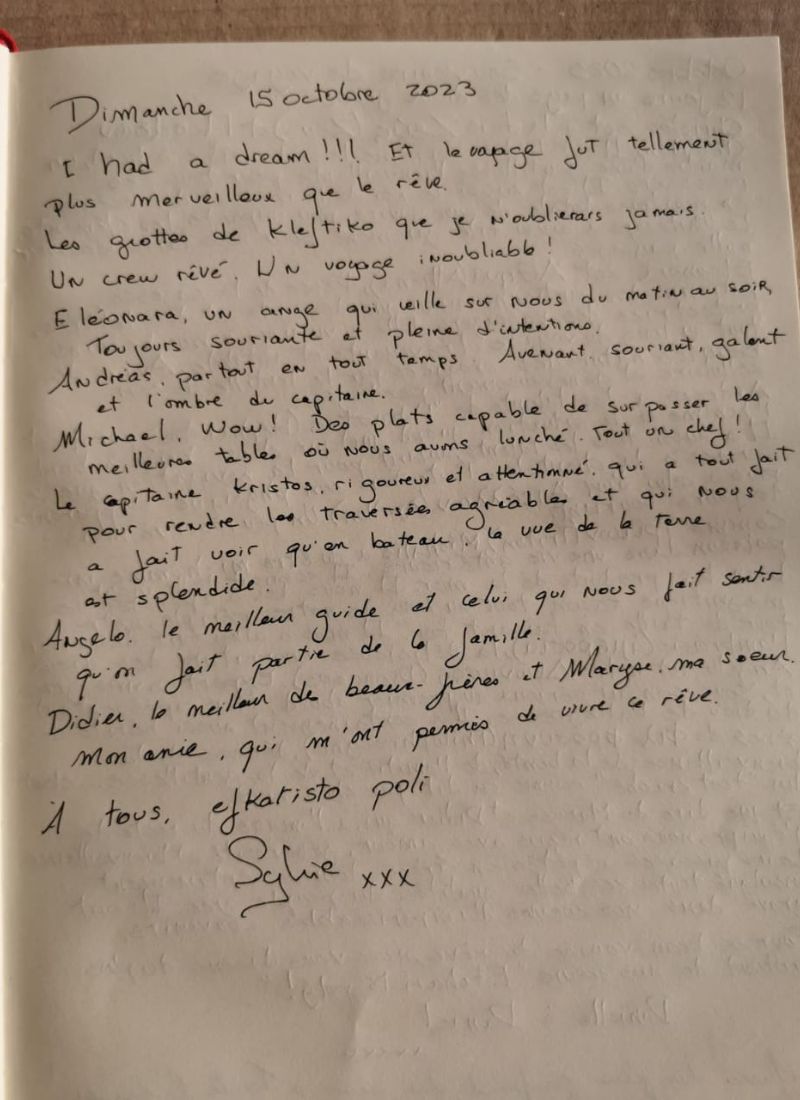 Dimanche 15 octobre 2023
I had a dream!!! Et le voyage fut tellement
plus merveilleux que le rêve.
Les grottes de Kleftiko que je n'oublierais jamais.
Un crew rêvé. Un voyage inoubliable!
Eléonara, un ange qui veille sur nous du matin au soir,
Toujours souriante et pleine d'intentions.
Andréas, partout en tout temps. Avenant, souriant, galant
et l'ombre du capitaine.
Michael, Wow! Des plats capable de surpasser les
meilleures tables où nous avons lunché. Tout un chef!
Le capitaine Kristos, rigoureux et attentionné, qui a tout fait
pour rendre les traversées agréables et qui nous
a fait voir qu'en bateau, la vue de la terre
est splendide.
Angelo, le meilleur guide et celui qui nous fait sentir
qu'on fait partie de la famille.
Didier, le meilleur de beaux-frères et Maryse, ma soeur.
Mon amie, qui m'ont permis de vivre ce rêve.
À tous, efkaristo poli
Sylvie xxx